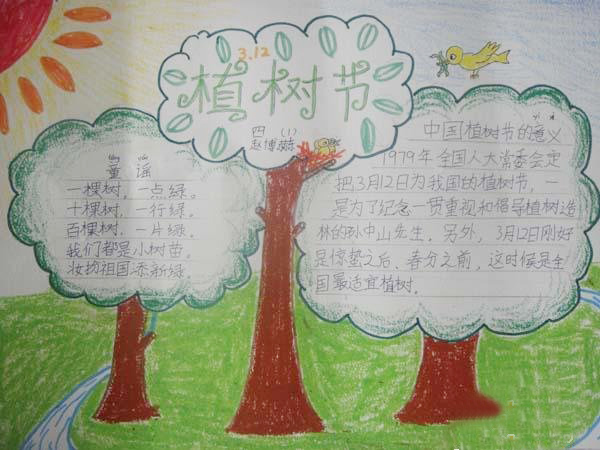 3.12
植树节
四（1）
赵博
童谣
一棵树，一点绿。
十棵树，一行绿。
百棵树，一片绿。
我们都是小树苗，
妆扮祖国添新绿。
中国植树节的意义
1979年全国人大常委会定
把3月12日为我国的植树节，一
是为了纪念一贯重视和倡导植树造
林的孙中山先生。另外，3月12日刚好
是惊蛰之后，春分之前，这时候是全
国最适宜植树。